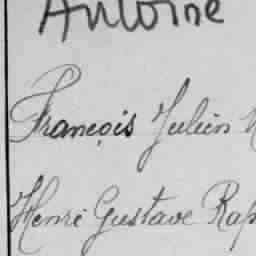 Antoine
François Julien
Henri Gustave Rap